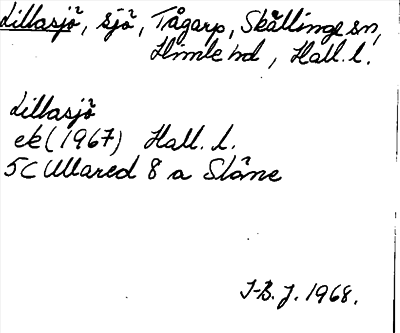 Lillasjö, sjö, Tågarp, Skällinge sn,
Himle hd, Hall. l.
Lillasjö
ek (1967) Hall. l.
5C Ullared 8 a Släne
I-B. J. 1968.